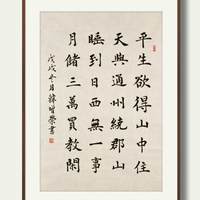 平生欲得山中住
天與通州繞郡山
睡到日西無一事
月儲三萬買教閑
戊戌冬月